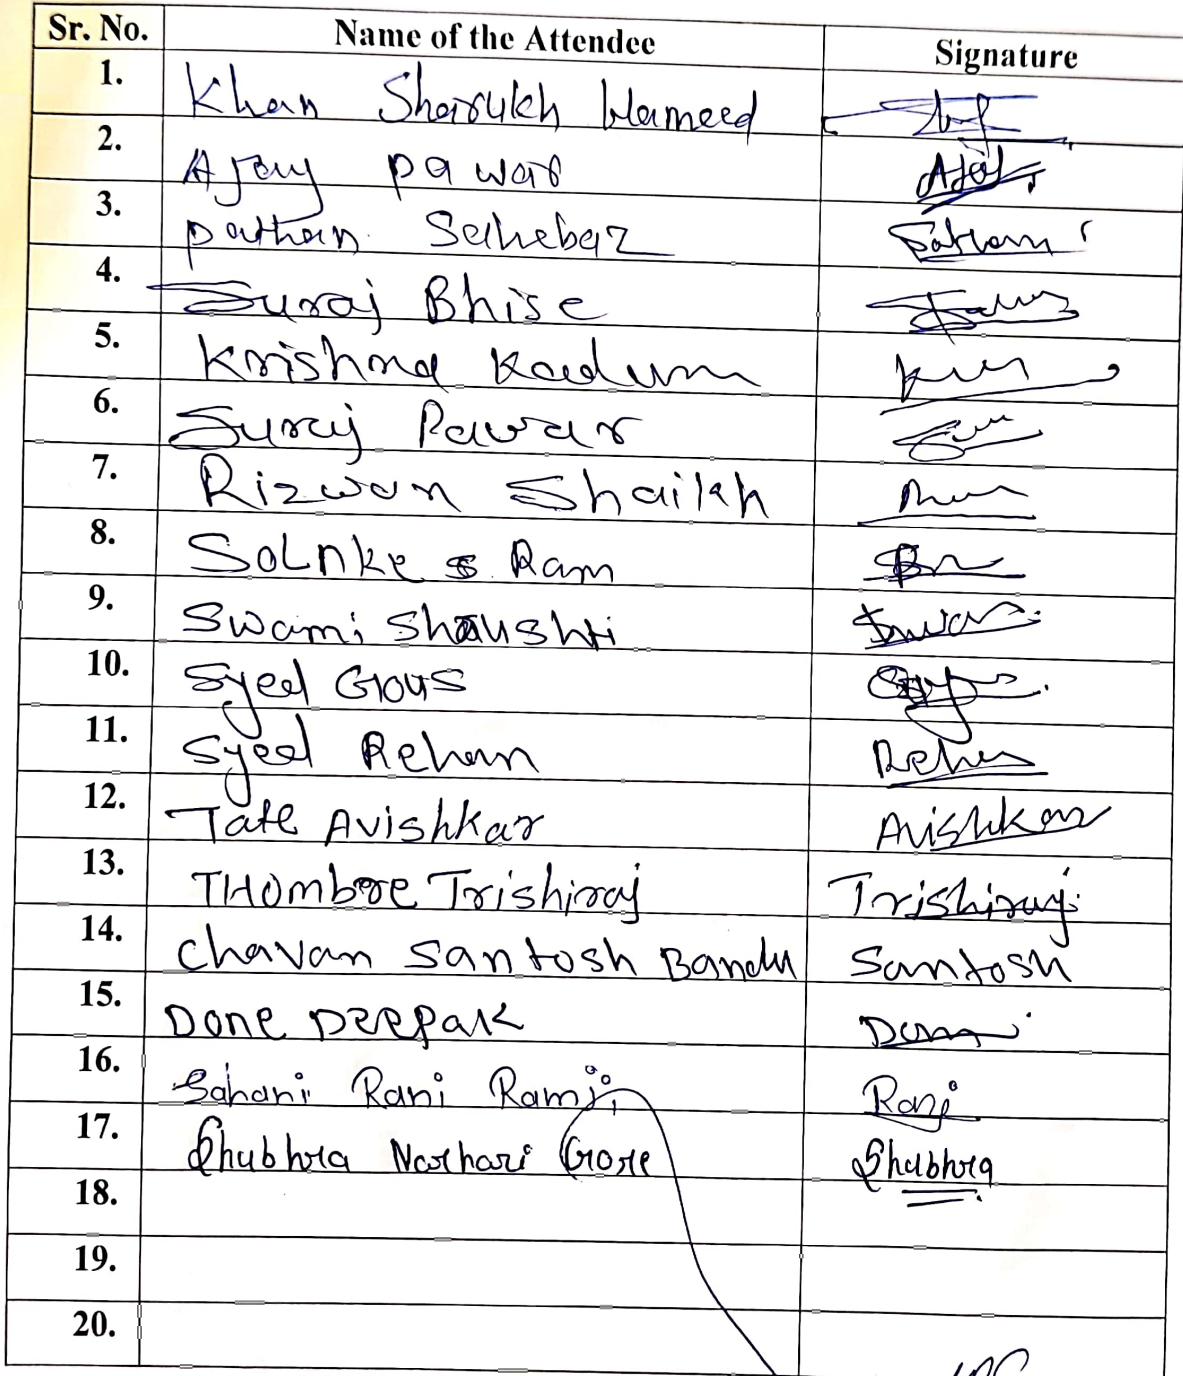 Sr. No. Name of the Attendee Signature
1. Khan Sharukh Hameed
2. Ajay pawar Ajay
3. pathan Sahebaz
4. Suraj Bhise
5. Krishna Kadam
6. Suraj Pawar
7. Rizwan Shaikh
8. SoLnke s Ram
9. Swami Shaushti
10. Syed Gous
11. Syed Rehan Rehan
12. Tate Avishkar Avishkar
13. THombre Trishiraj Trishiraj
14. Chavan Santosh Bandu Santosh
15. Done Deepak
16. Sahani Rani Ramji Rani
17. Shubhra Narhari Gore Shubhra
18.
19.
20.